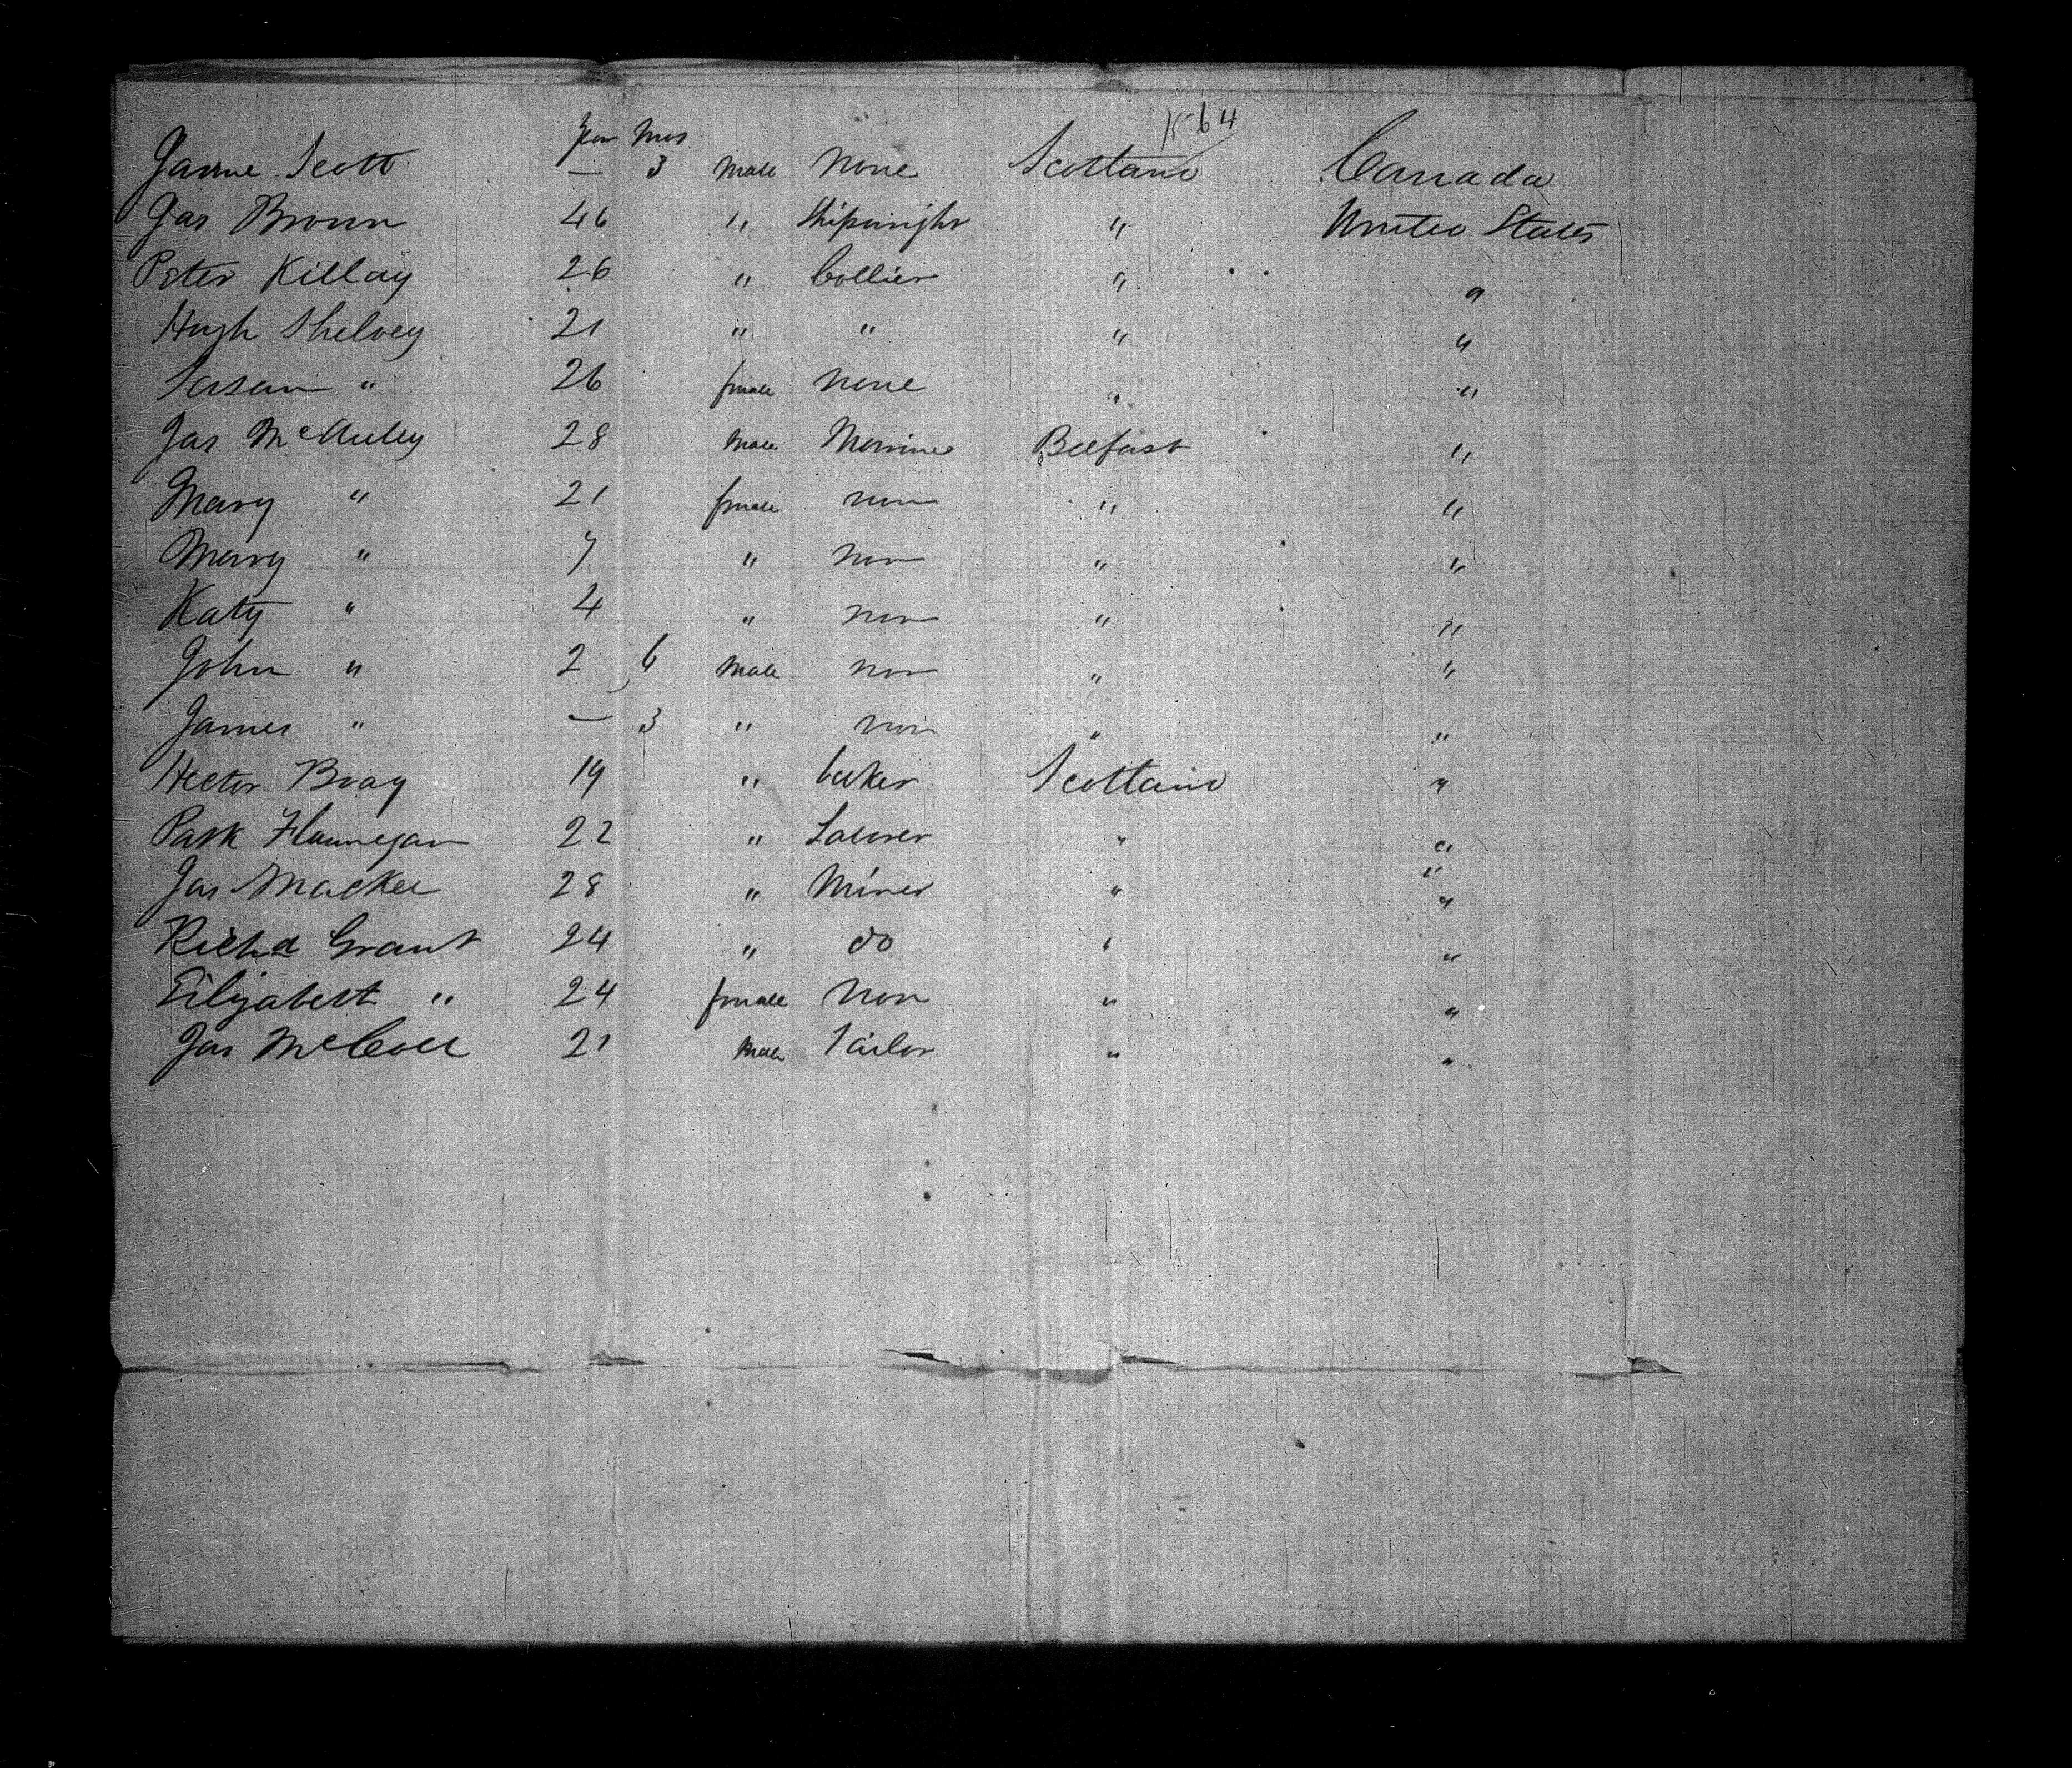 Year Mos 1564
Jamie Scott — 3 Male None Scotland Canada
Jas Brown 46 " Shipwright " United States
Peter Killay 26 " Collier " "
Hugh Shelvey 21 " " " "
Susan " 26 female None " "
Jas McAuley 28 Male Marine Belfast "
Mary " 21 female non " "
Mary " 7 " non " "
Katy " 4 " non " "
John " 2 6 Male non " "
James " — 3 " non " "
Hector Bray 19 " baker Scotland "
Patk Flannegan 22 " Laborer " "
Jas Mackee 28 " Miner " "
Richd Grant 24 " do " "
Elizabeth " 24 female Non " "
Jas McColl 21 Male Tailor " "